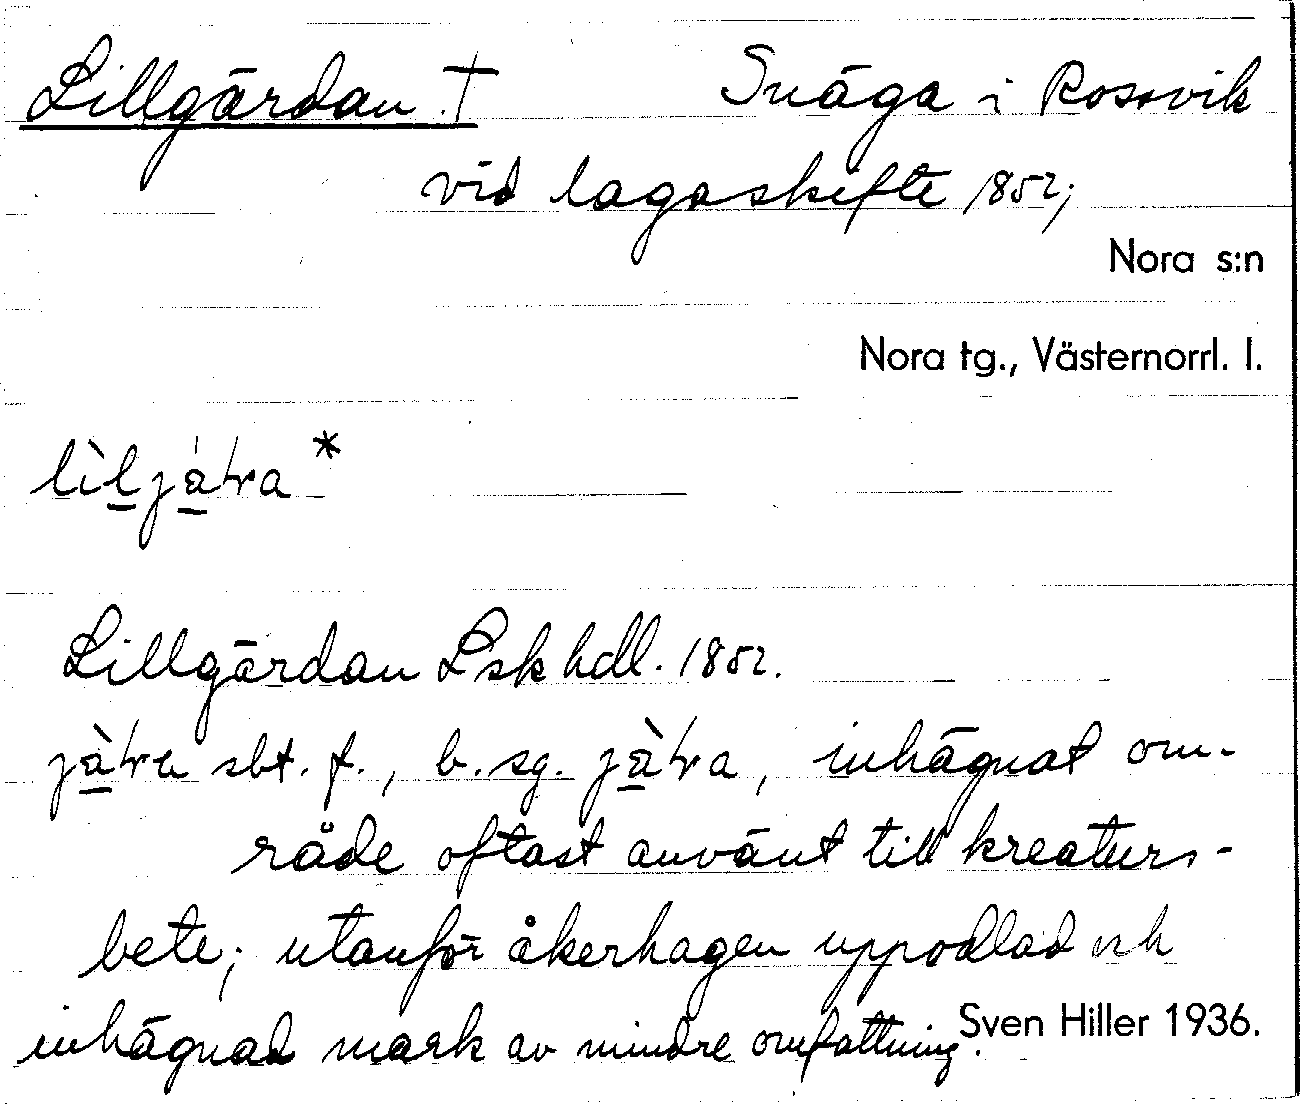 Lillgärdan † Snäga i Rossvik
vid lagaskifte 1852;
Nora s:n
Nora tg., Västernorrl. l.
Lillgärdan Lsk hdl. 1852.
sbt. f., b. sg. inhägnat om-
råde oftast använt till kreaturs-
bete; utanför åkerhagen uppodlad och
inhägnad mark av mindre omfattning.
Sven Hiller 1936.